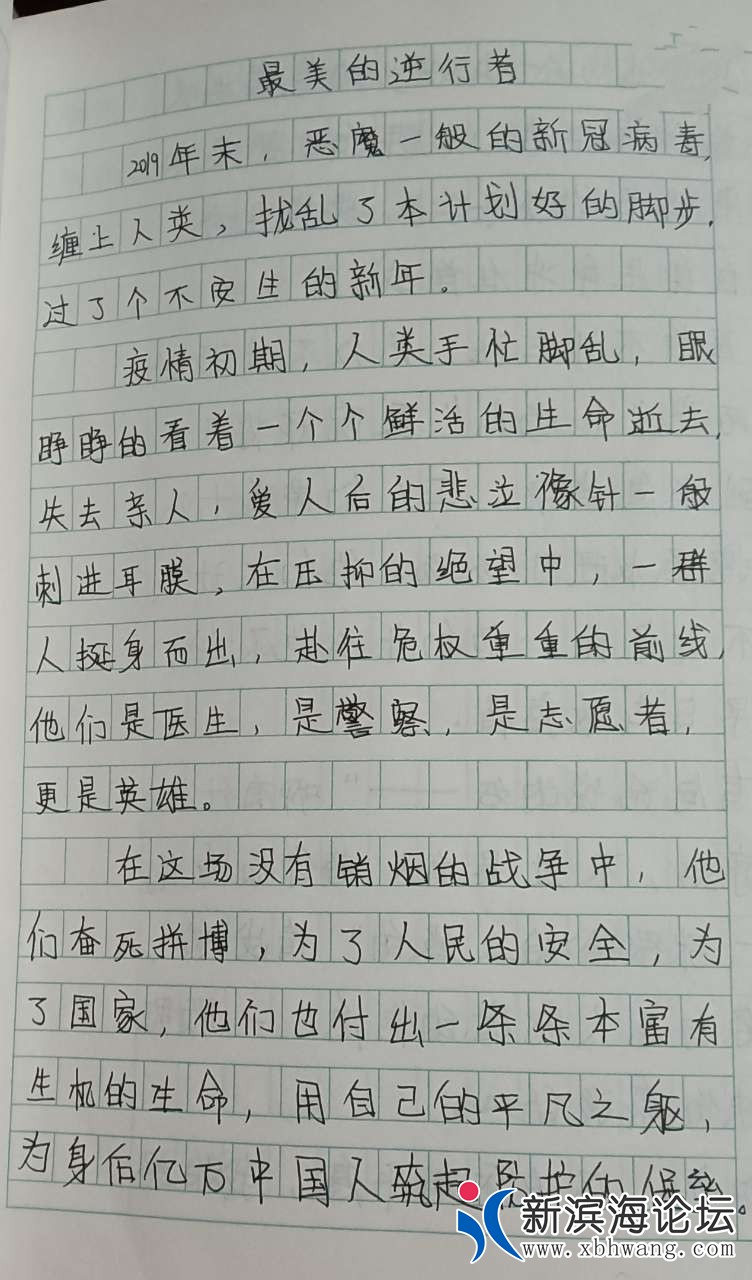 最美的逆行者
2019年末，恶魔一般的新冠病毒，
缠上人类，扰乱了本计划好的脚步，
过了个不安生的新年。
疫情初期，人类手忙脚乱，眼
睁睁的看着一个个鲜活的生命逝去，
失去亲人，爱人后的悲泣像针一般
刺进耳膜，在压抑的绝望中，一群
人挺身而出，赴往危权重重的前线，
他们是医生，是警察，是志愿者，
更是英雄。
在这场没有销烟的战争中，他
们奋死拼博，为了人民的安全，为
了国家，他们也付出一条条本富有
生机的生命，用自己的平凡之躯，
为身后亿万中国人筑起防护的保
新滨海论坛
www.xbhwang.com